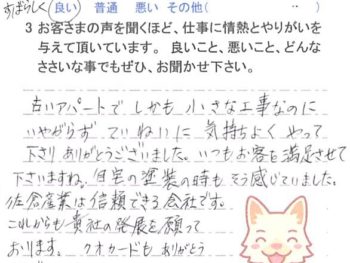 すばらしく 良い 普通 悪い その他( )
3 お客さまの声を聞くほど、仕事に情熱とやりがいを
与えて頂いています。 良いこと、悪いこと、どんな
ささいな事でもぜひ、お聞かせ下さい。
古いアパートで しかも 小さな工事なのに
いやがらず ていねいに 気持ちよく やって
下さり ありがとうございました。いつもお客を満足させて
下さいますね。自宅の塗装の時も そう感じていました。
佐倉産業は信頼できる会社です。
これからも貴社の発展を願って
おります。 クオカードも ありがとう